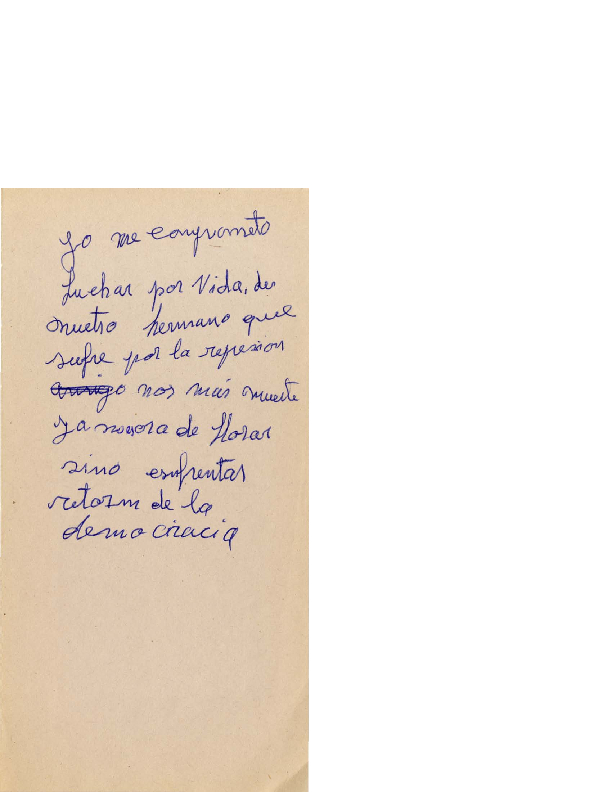 yo me compromето
Luchar por Vida, de
nuetro hermano que
sufre por la represion
amigo nos más muerte
ya nos ora de llorar
sino enfrentar
retorn de la
democracia